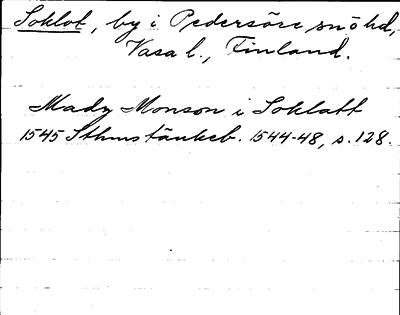 Soklot, by i Pedersöre snöhd,
Vasa l., Finland.
Mady Monson i Soklatt
1545 Sthms tänkeb. 1544-48, s. 128.